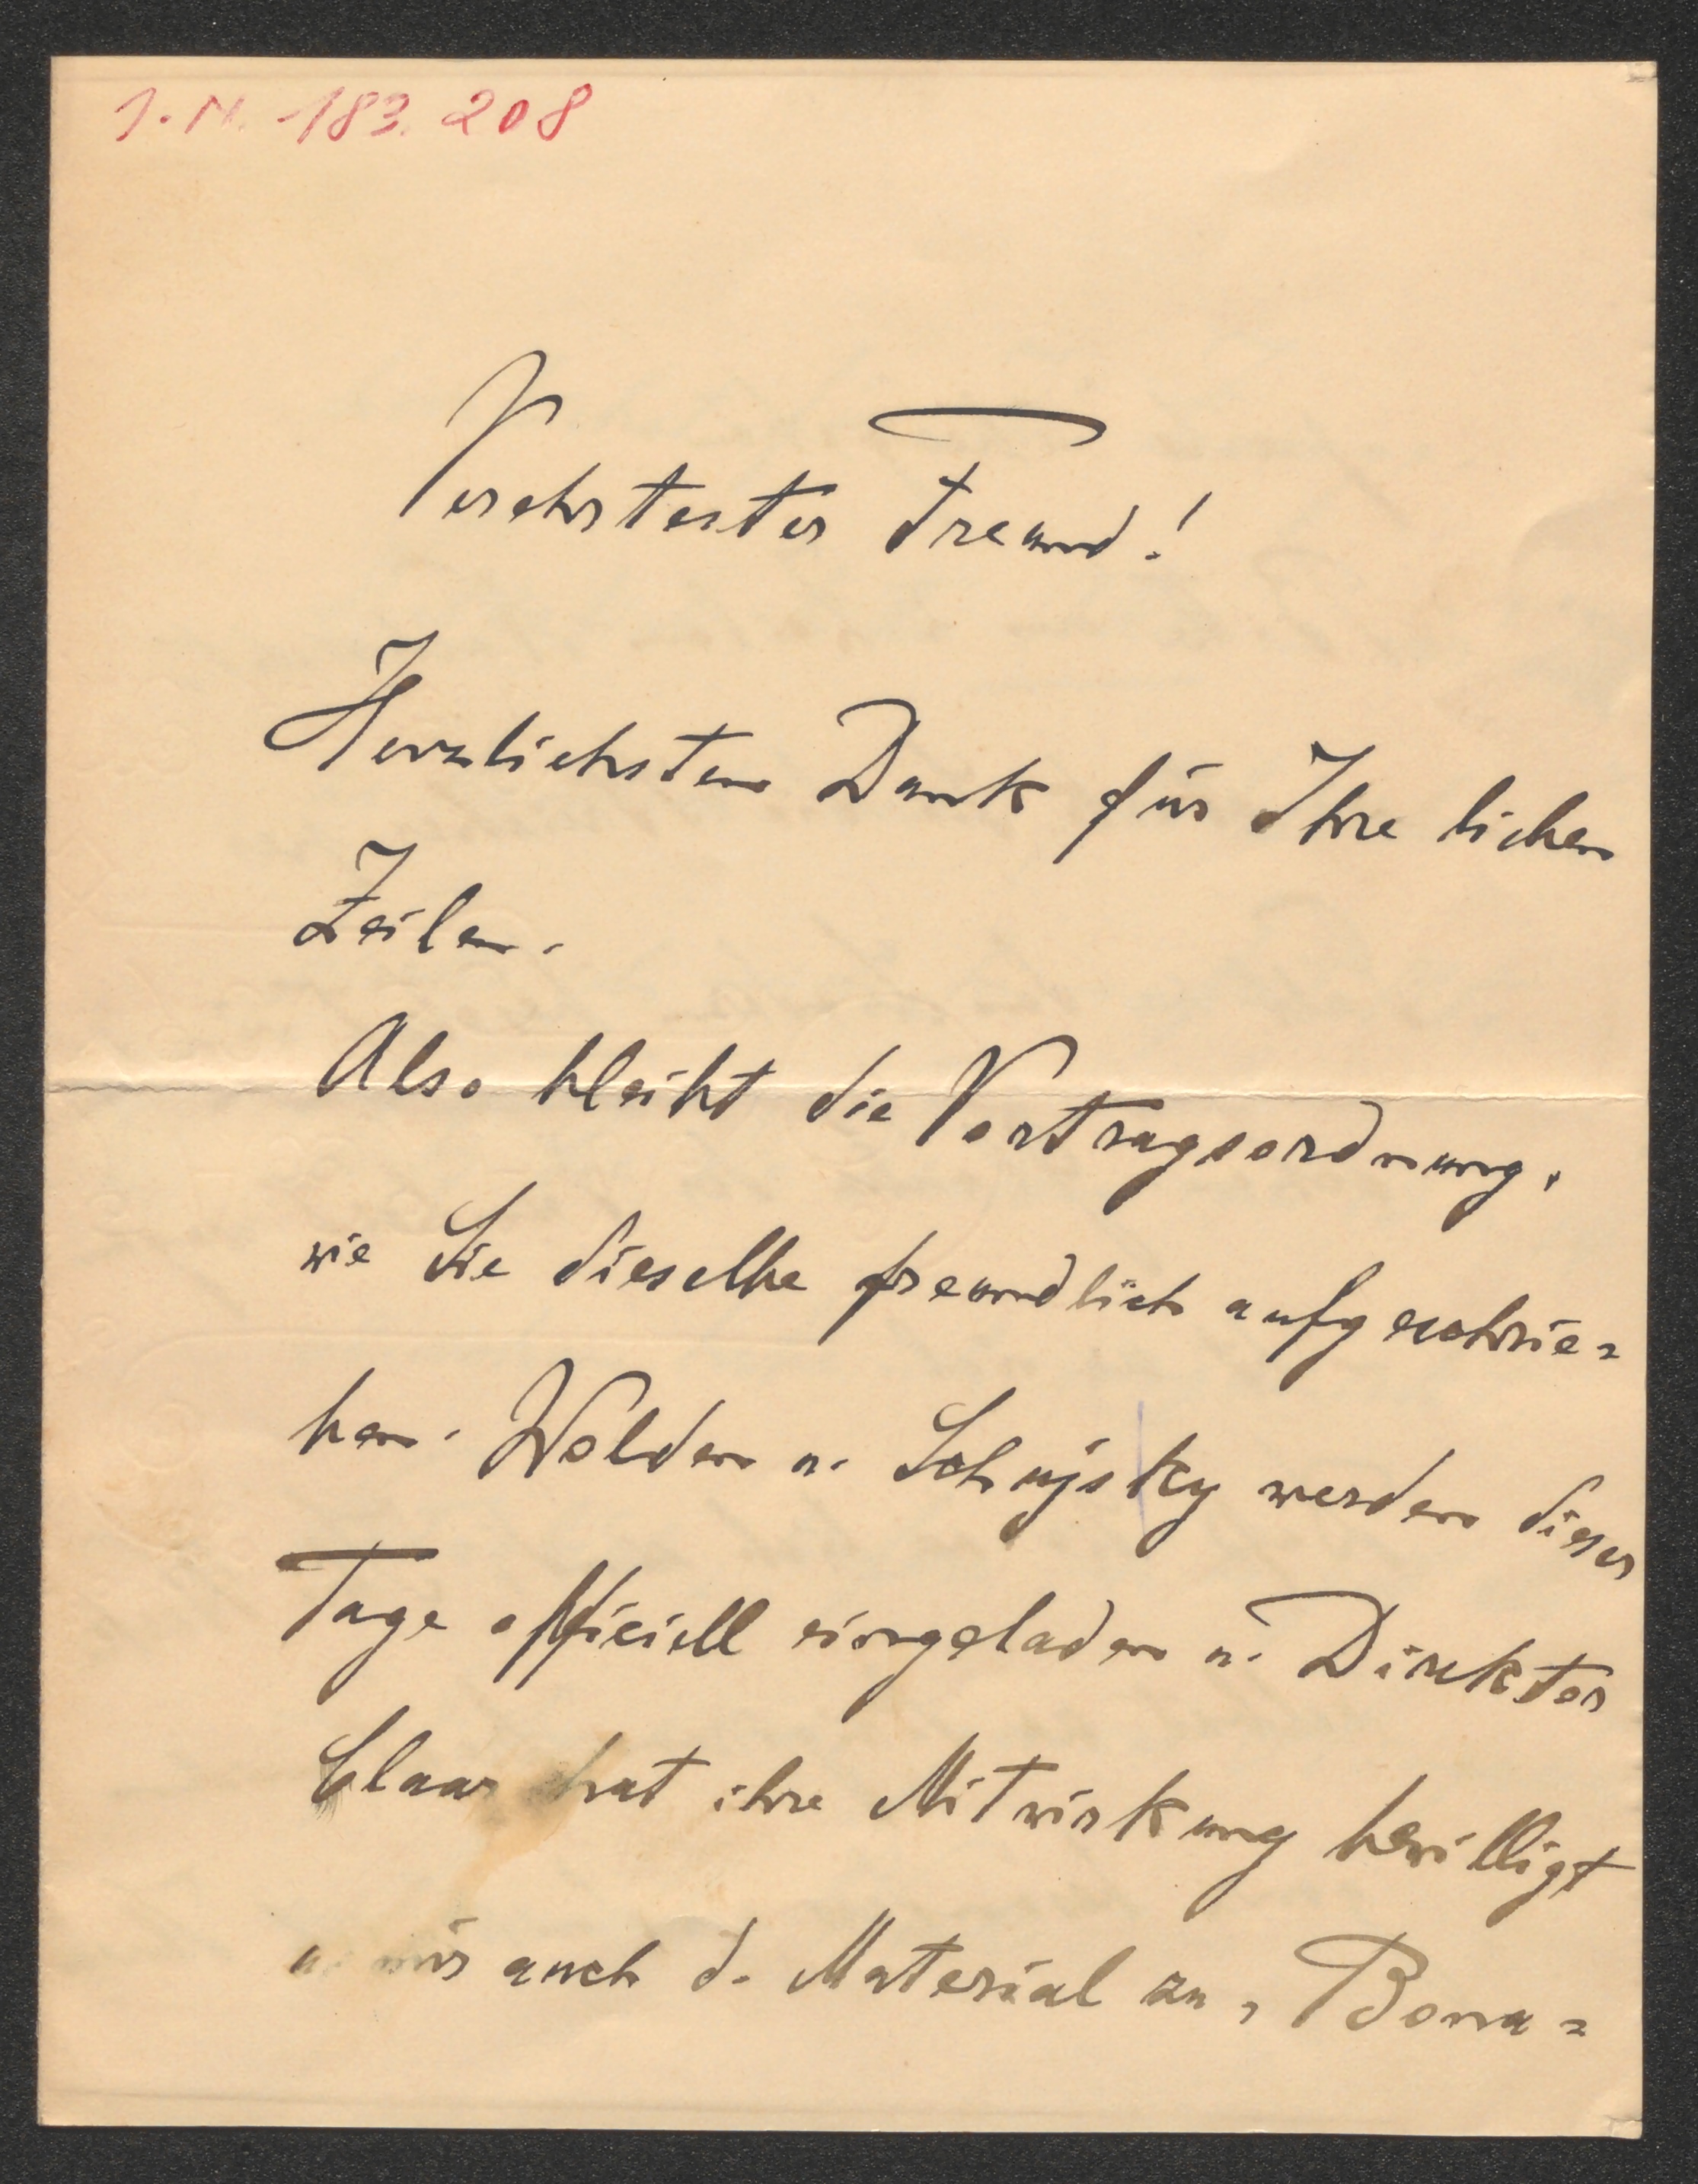 J. N. 183.208
Verehrtester Freund!
Herzlichsten Dank für Ihre lieben
Zeilen.
Also bleibt die Vortragsordnung,
wie Sie dieselbe freundlich aufgeschrie=
ben. Wolden u. werden dieser
Tage officiell eingeladen u. Direktor
Claar hat ihre Mitwirkung bewilligt
u. mir auch d. Material zu „Bona=